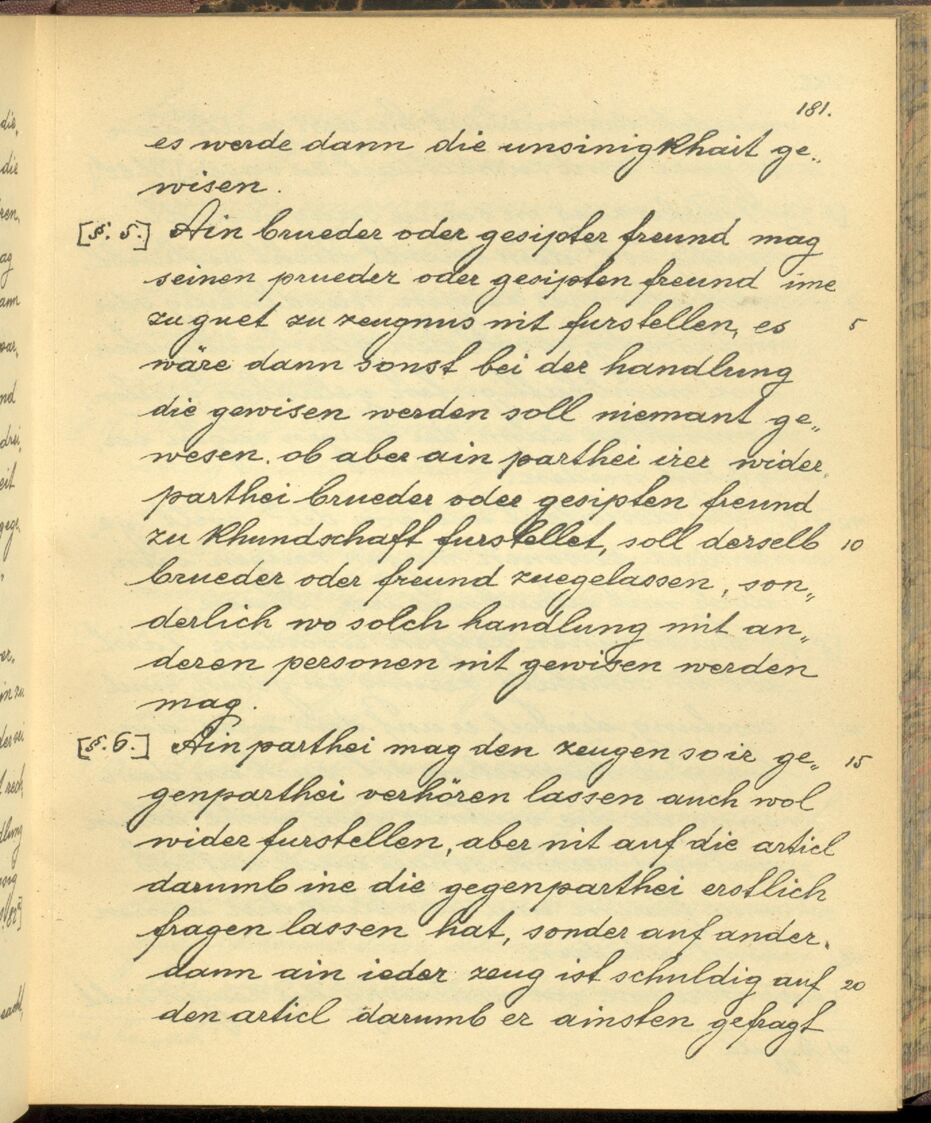 181.
es werde dann die unsinigkhait ge„
wisen.
[§. 5.] Ain brueder oder gesipter freund mag
seinen prueder oder gesipten freund ime
zu guet zu zeugnus nit furstellen, es 5
wäre dann sonst bei der handlung
die gewisen werden soll niemant ge„
wesen. ob aber ain parthei irer wider„
parthei brueder oder gesipten freund
zu khundschaft furstellet, soll derselb 10
brueder oder freund zuegelassen, son„
derlich wo solch handlung mit an„
deren personen nit gewisen werden
mag.
[§. 6.] Ain parthei mag den zeugen so ir ge„ 15
genparthei verhören lassen auch wol
wider furstellen, aber nit auf die articl
darumb ine die gegenparthei erstlich
fragen lassen hat, sonder auf ander.
dann ain ieder zeug ist schuldig auf 20
den articl darumb er ainsten gefragt